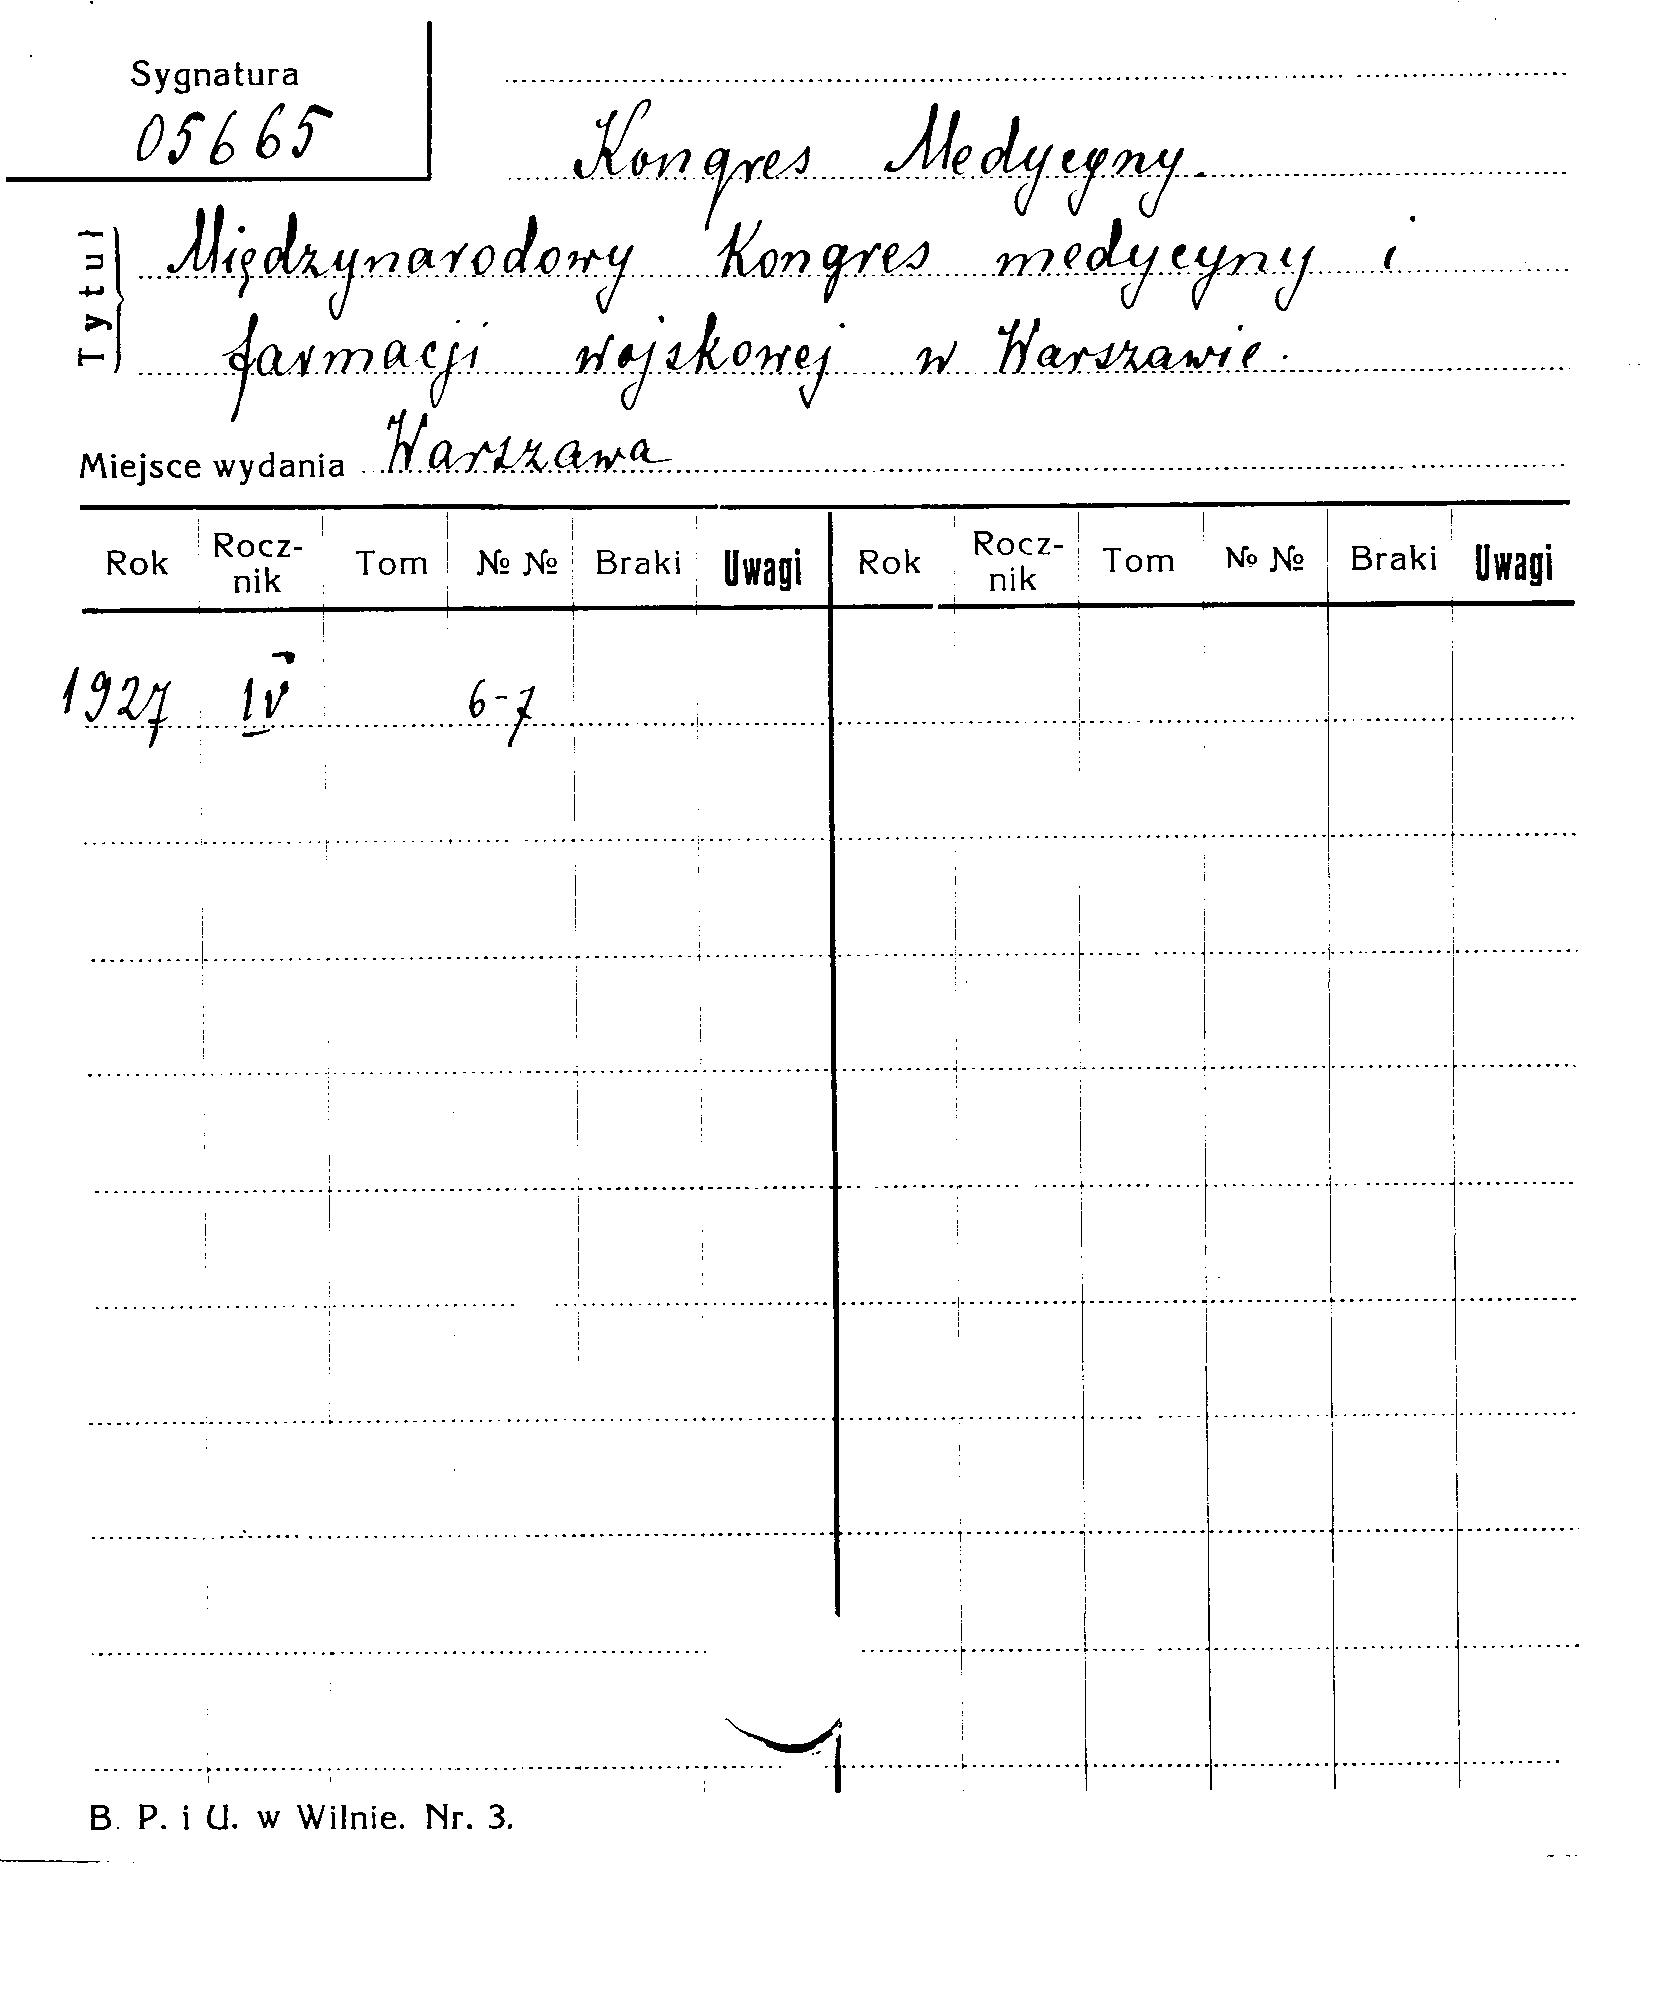 Sygnatura
05665
Kongres Medycyny.
Tytuł
Międzynarodowy Kongres medycyny i
farmacji wojskowej w Warszawie.
Miejsce wydania Warszawa
Rok Rocz-nik Tom № № Braki Uwagi Rok Rocz-nik Tom № № Braki Uwagi
1927 IV 6-7
B. P. i U. w Wilnie. Nr. 3.